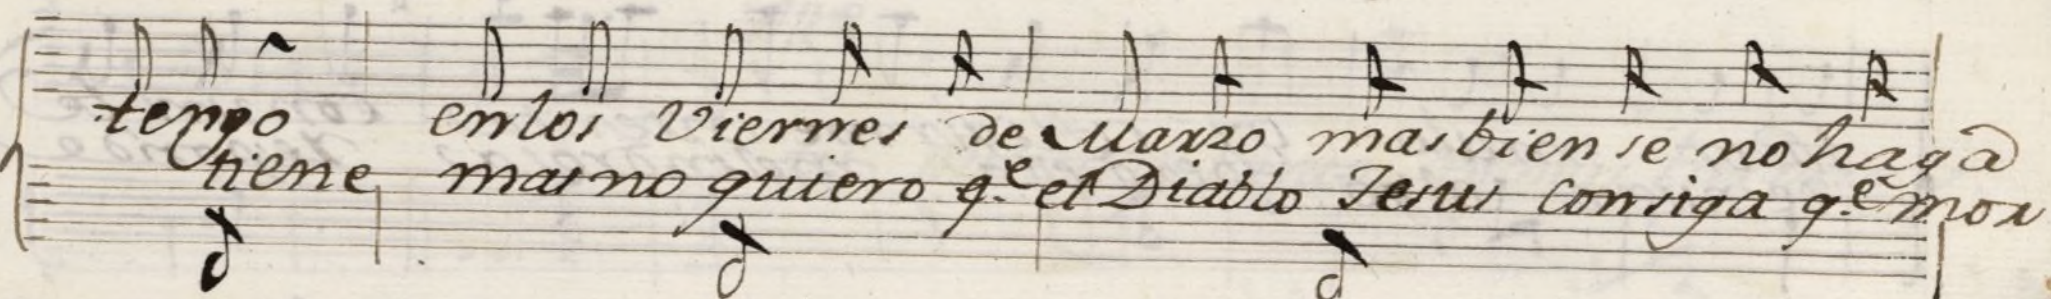 tengo en los Viernes de Marzo mas bien se no haga
tiene mas no quiero q.e el Diablo Jesus consiga q.e mor